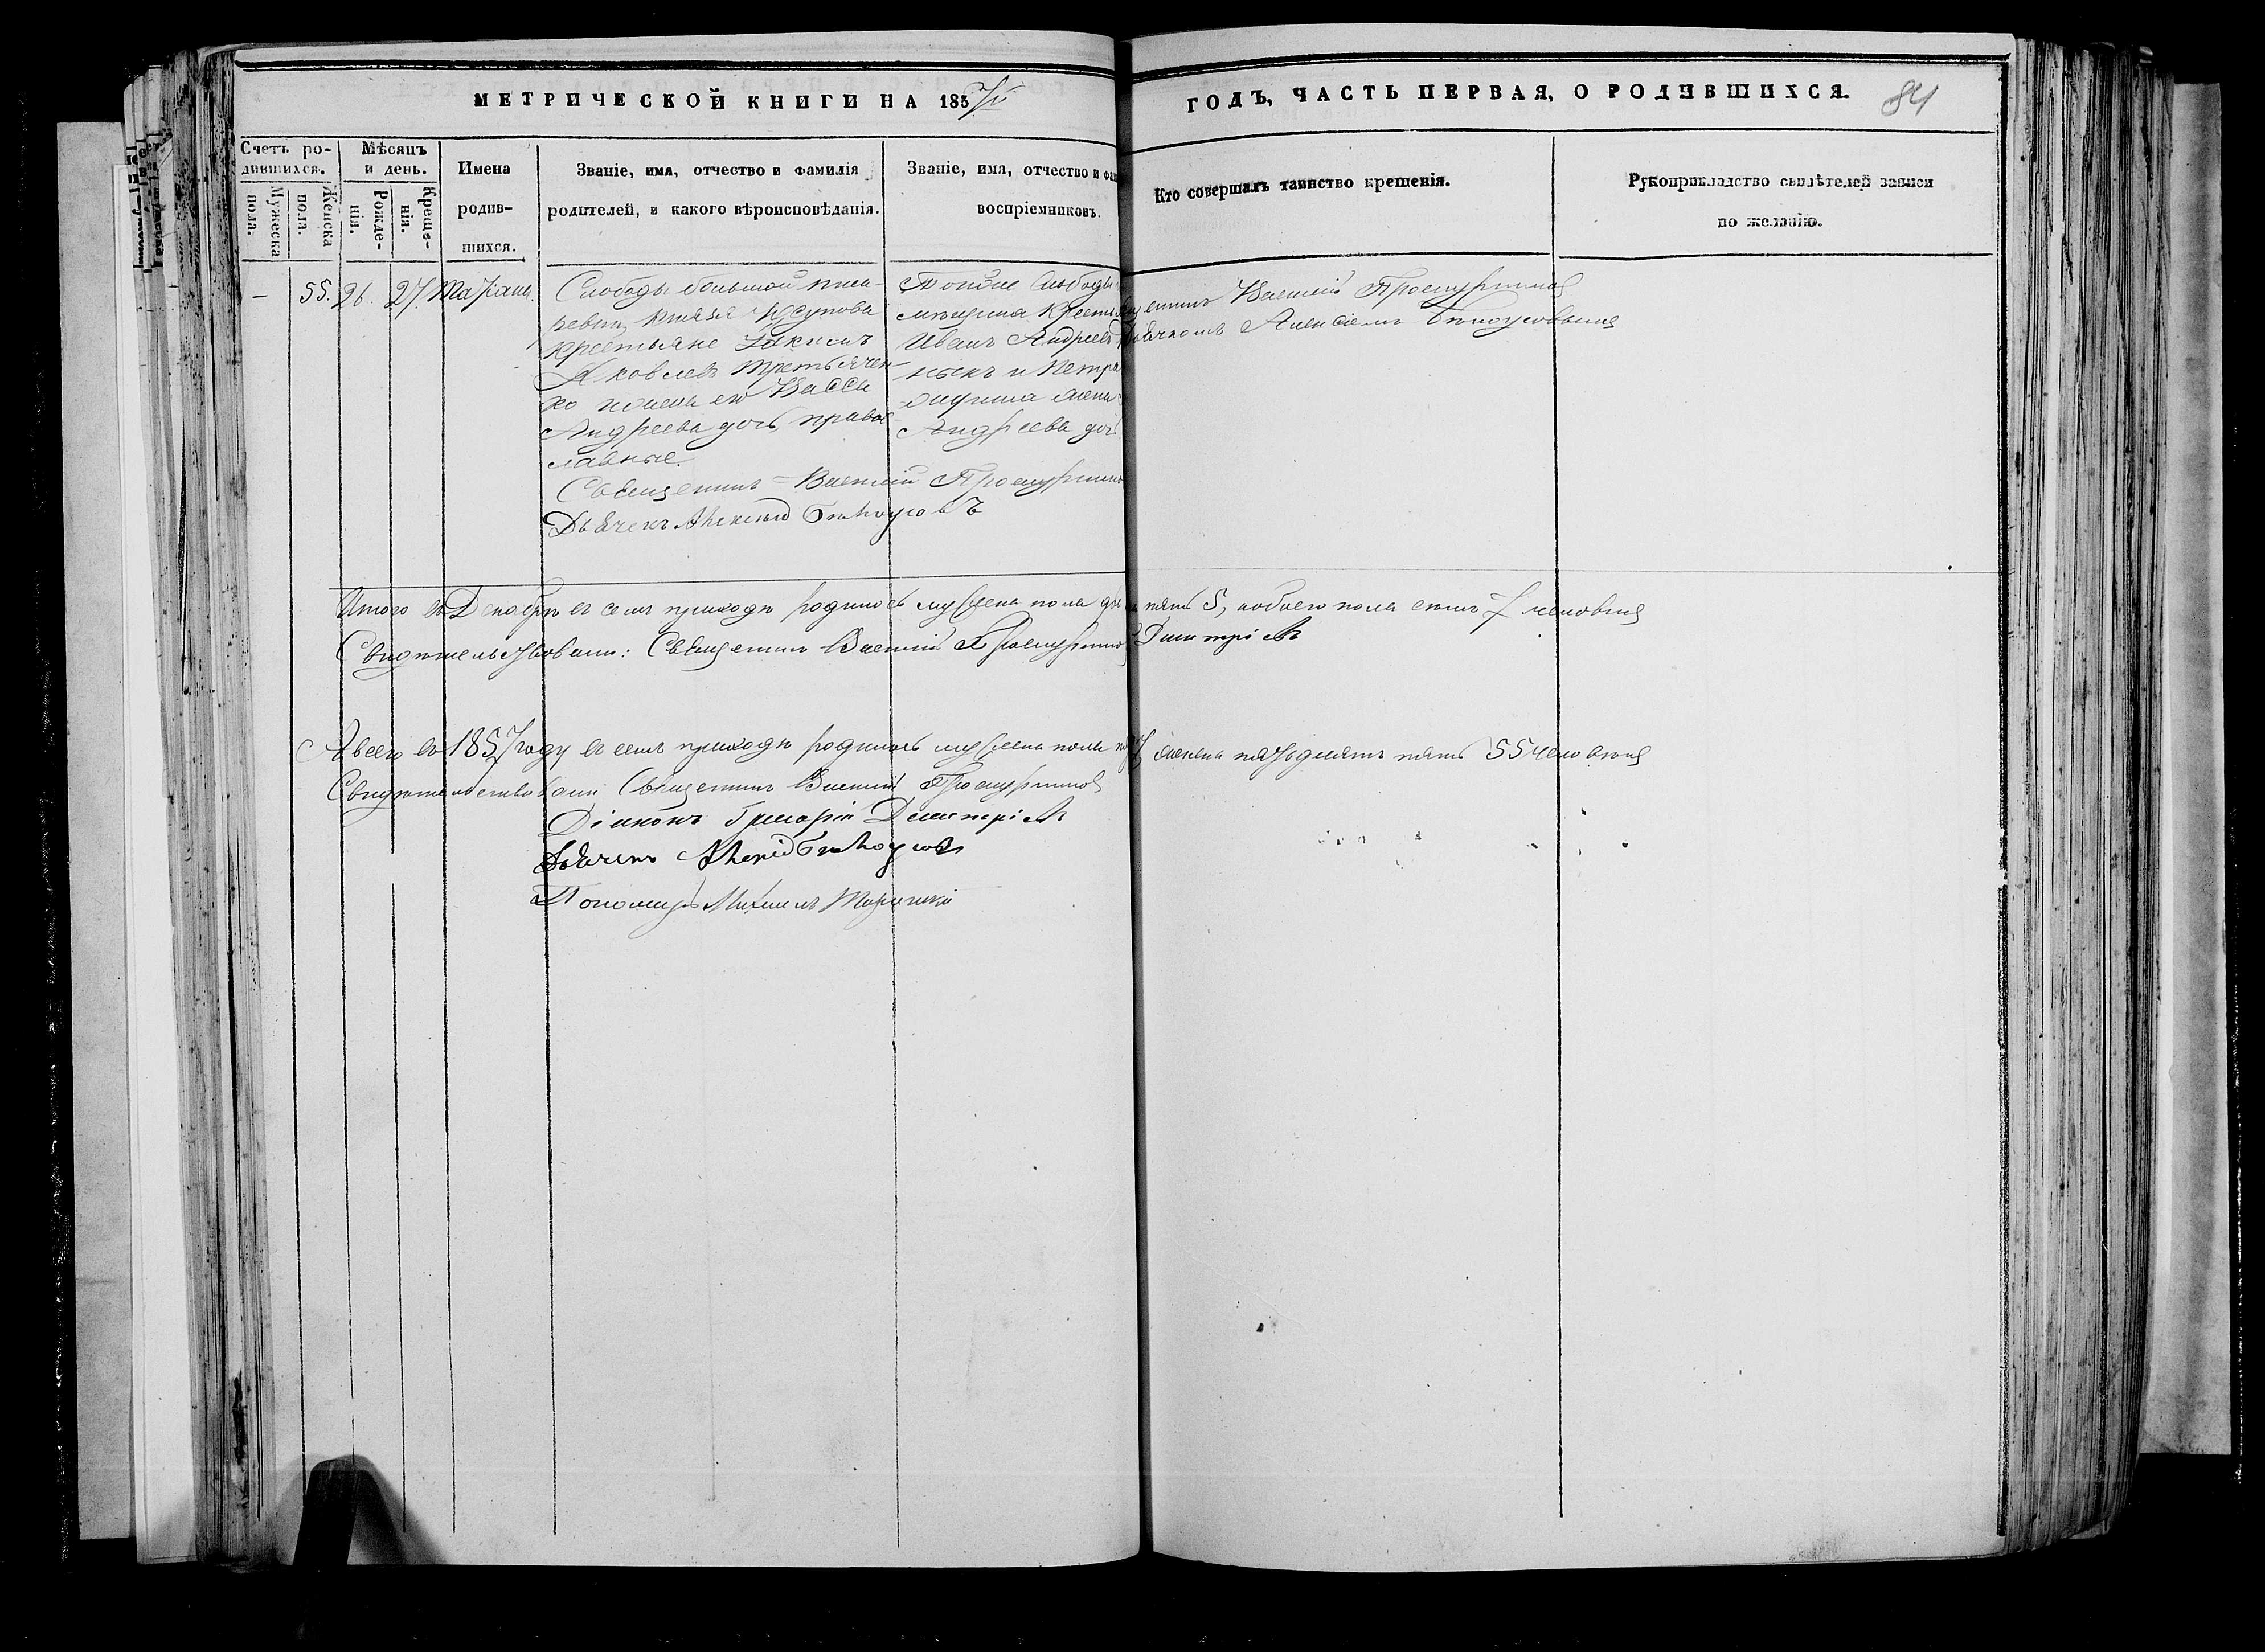 МЕТРИЧЕСКОЙ КНИГИ НА 1857й
ГОДЪ, ЧАСТЬ ПЕРВАЯ, О РОДИВШИХСЯ.
84
Счетъ ро-
дившихся.
Мужеска
пола.
Женска
пола.
Мѣсяцъ
и день.
Рожде-
нія.
Креще-
нія.
Имена
родив-
шихся.
Званіе, имя, отчество и фамилія
родителей, и какого вѣроисповѣданія.
Званіе, имя, отчество и фам
воспріемниковъ.
Кто совершалъ таинство крещенія.
Рукоприкладство свидѣтелей записи
по желанію.
— 55. 26. 27. Маріана.
Слободы большой писа-
ревки, Князя Юсупова
крестьяне
Яковлевъ Третьячен-
ко и жена его Васса
Андреева дочь, право
славные.
Священникъ Василій
Дьячекъ Алексѣй Бѣлоусовъ
Тойже Слободы
Иванъ Андреевъ
Андреева дочь
Василій
Дьячкомъ Алексіемъ Бѣлоусовымъ
Итого въ Декабрѣ въ семъ приходѣ родилось мужеска пола два пять 5, обоего пола семь 7 человѣкъ
Свидѣтельствовали: Священникъ Василій
А всего въ 1857 году въ семъ приходѣ родилось мужеска пола женска пятьдесятъ пять 55 человѣкъ
Свидѣтельствовали Священникъ Василій
Діаконъ Григорій
Дьячекъ Алексѣй Бѣлоусовъ
Пономарь Михаилъ